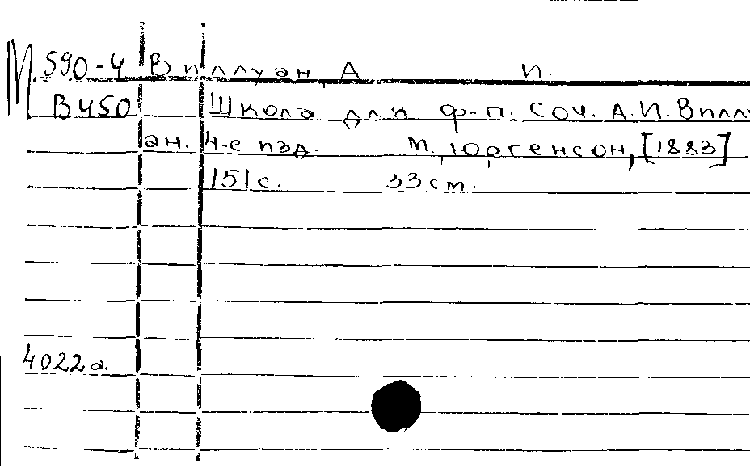 М 590-4 Виллуан, А И.
В450 Школа для ф-п. Соч. А.И. Вилл
ан. 4-е изд. М., Юргенсон, [1883]
151 с. 33 см.
4022а